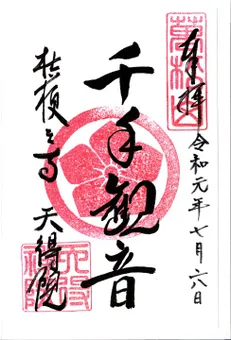 奉拝
令和元年七月六日
千手観音
桔梗之寺
天得院